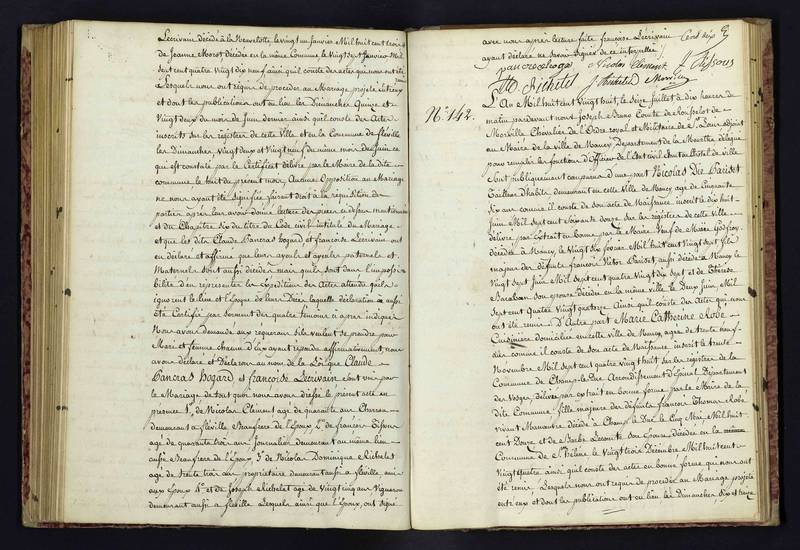 Lecrivain décédé à la Neuvelotte le vingt un Janvier Mil huit cent trois et
de Jeanne Morot décédée en la même Commune le Vingt sept Janvier Mil
sept cent quatre Vingt dix neuf ainsi qu'il conste des actes qui nous ont été
Lesquels nous ont requis de procéder au Mariage projeté entr'eux
et dont les publications ont eu lieu les dimanches Quinze et
Vingt deux du mois de Juin dernier ainsi qu'il conste des Actes
inscrits sur les registres de cette Ville et en la Commune de fléville
les dimanches Vingt deux et Vingt neuf du même mois de Juin ce
qui est constaté par le Certificat délivré par le Maire de la dite
commune le huit du présent mois. Aucune Opposition au Mariage
ne nous ayant été signifiée faisant droit à la réquisition des
parties après leur avoir donné lecture des pièces ci dessus mentionnées
et du Chapitre Six du titre du Code civil intitulé du Mariage
et que les dits Claude Pancras hogard et françoise Lecrivain ont
en déclaré et affirmé que leurs ayeuls et ayeules paternels et
Maternels sont aussi décédés mais qu'ils sont dans l'impossi-
bilité d'en représenter les Expéditions des Actes attendu qu'ils
ignorent le lieu et l'époque de leurs Décès laquelle déclaration a aussi
été Certifiée par serment des quatre témoins ci après indiqués
Nous avons demandé aux requérans s'ils veulent se prendre pour
Mari et femme chacun d'Eux ayant répondu affirmativement, nous
avons déclaré et Déclarons au nom de la Loi que Claude
Pancras hogard et françoise Lecrivain sont unis par
le Mariage de tout quoi nous avons dressé le présent acte en
présence 1.° de Nicolas Clément agé de quarante ans Charron
demeurant à fléville Beaufrere de l'Epoux 2.° de françois
agé de quarante trois ans Journalier demeurant au même lieu
aussi Beaufrere de l'Epoux, 3.° de Nicolas Dominique Richelet
agé de trente trois ans proprietaire demeurant aussi à fléville, ami
aux Epoux 4.° et de Joseph Richelet agé de Vingt cinq ans Vigneron
demeurant aussi à fléville Lesquels ainsi que l'Epoux, ont signé
avec nous après lecture faite françoise Lecrivain Cent dix
ayant déclaré ne savoir signer de ce interpellée
pancrace hogard Nicolas Clément
ND Richelet J Richelet
N.° 142.
L'An Mil huit cent Vingt huit, le Seize Juillet à dix heures du
matin pardevant nous Joseph
Morville Chevalier de l'Ordre royal et Militaire de S.t Louis Adjoint
au Maire de la ville de Nancy, département de la Meurthe délégué
pour remplir les fonctions d'Officier de l'état civil en l'hotel de ville
Sont publiquement comparus d'une part Nicolas Dié Parisot
Tailleur d'habits, demeurant en cette Ville de Nancy agé de Cinquante
six ans comme il conste de son acte de Naissance, inscrit le dix huit
Juin Mil sept cent Soixante douze, sur les registres de cette Ville
délivré par Extrait en bonne forme par le Maire Veuf de Marie Godfroy
décédée à Nancy, le Vingt dix Janvier Mil huit cent Vingt sept fils
majeur des défunts francois Victor Parisot, aussi décédé à Nancy le
Vingt sept Juin Mil sept cent quatre Vingt dix sept et de Thérèse
Barabant son épouse décédée en la même ville le Deux Juin, Mil
sept cent Quatre Vingt quatorze Ainsi qu'il conste des Actes qui nous
ont été remis. D'Autre part Marie Catherine Robé
Cuisinière domiciliée en cette ville de Nancy, agée de trente neuf
ans comme il conste de son acte de Naissance inscrit le trente
Novembre Mil sept cent quatre Vingt huit sur les registres de la
Commune de Champ-le-Duc Arrondissement d'Epinal Département
des Vosges, délivré par extrait en bonne forme par le Maire de la
dite Commune; fille majeure des défunts francois Thomas Robé
vivant Manœuvre décédé à Champ le Duc le Cinq Mai Mil huit
cent Douze et de Barbe Lecomte son Epouse décédée en la même
Commune de S.te Hélène le Vingt trois Décembre Mil huit cent
Vingt quatre ainsi qu'il conste des actes en bonne forme qui nous ont
été remis. Lesquels nous ont requis de procéder au Mariage projeté
entr'eux et dont les publications ont eu lieu les dimanches, dix et treize